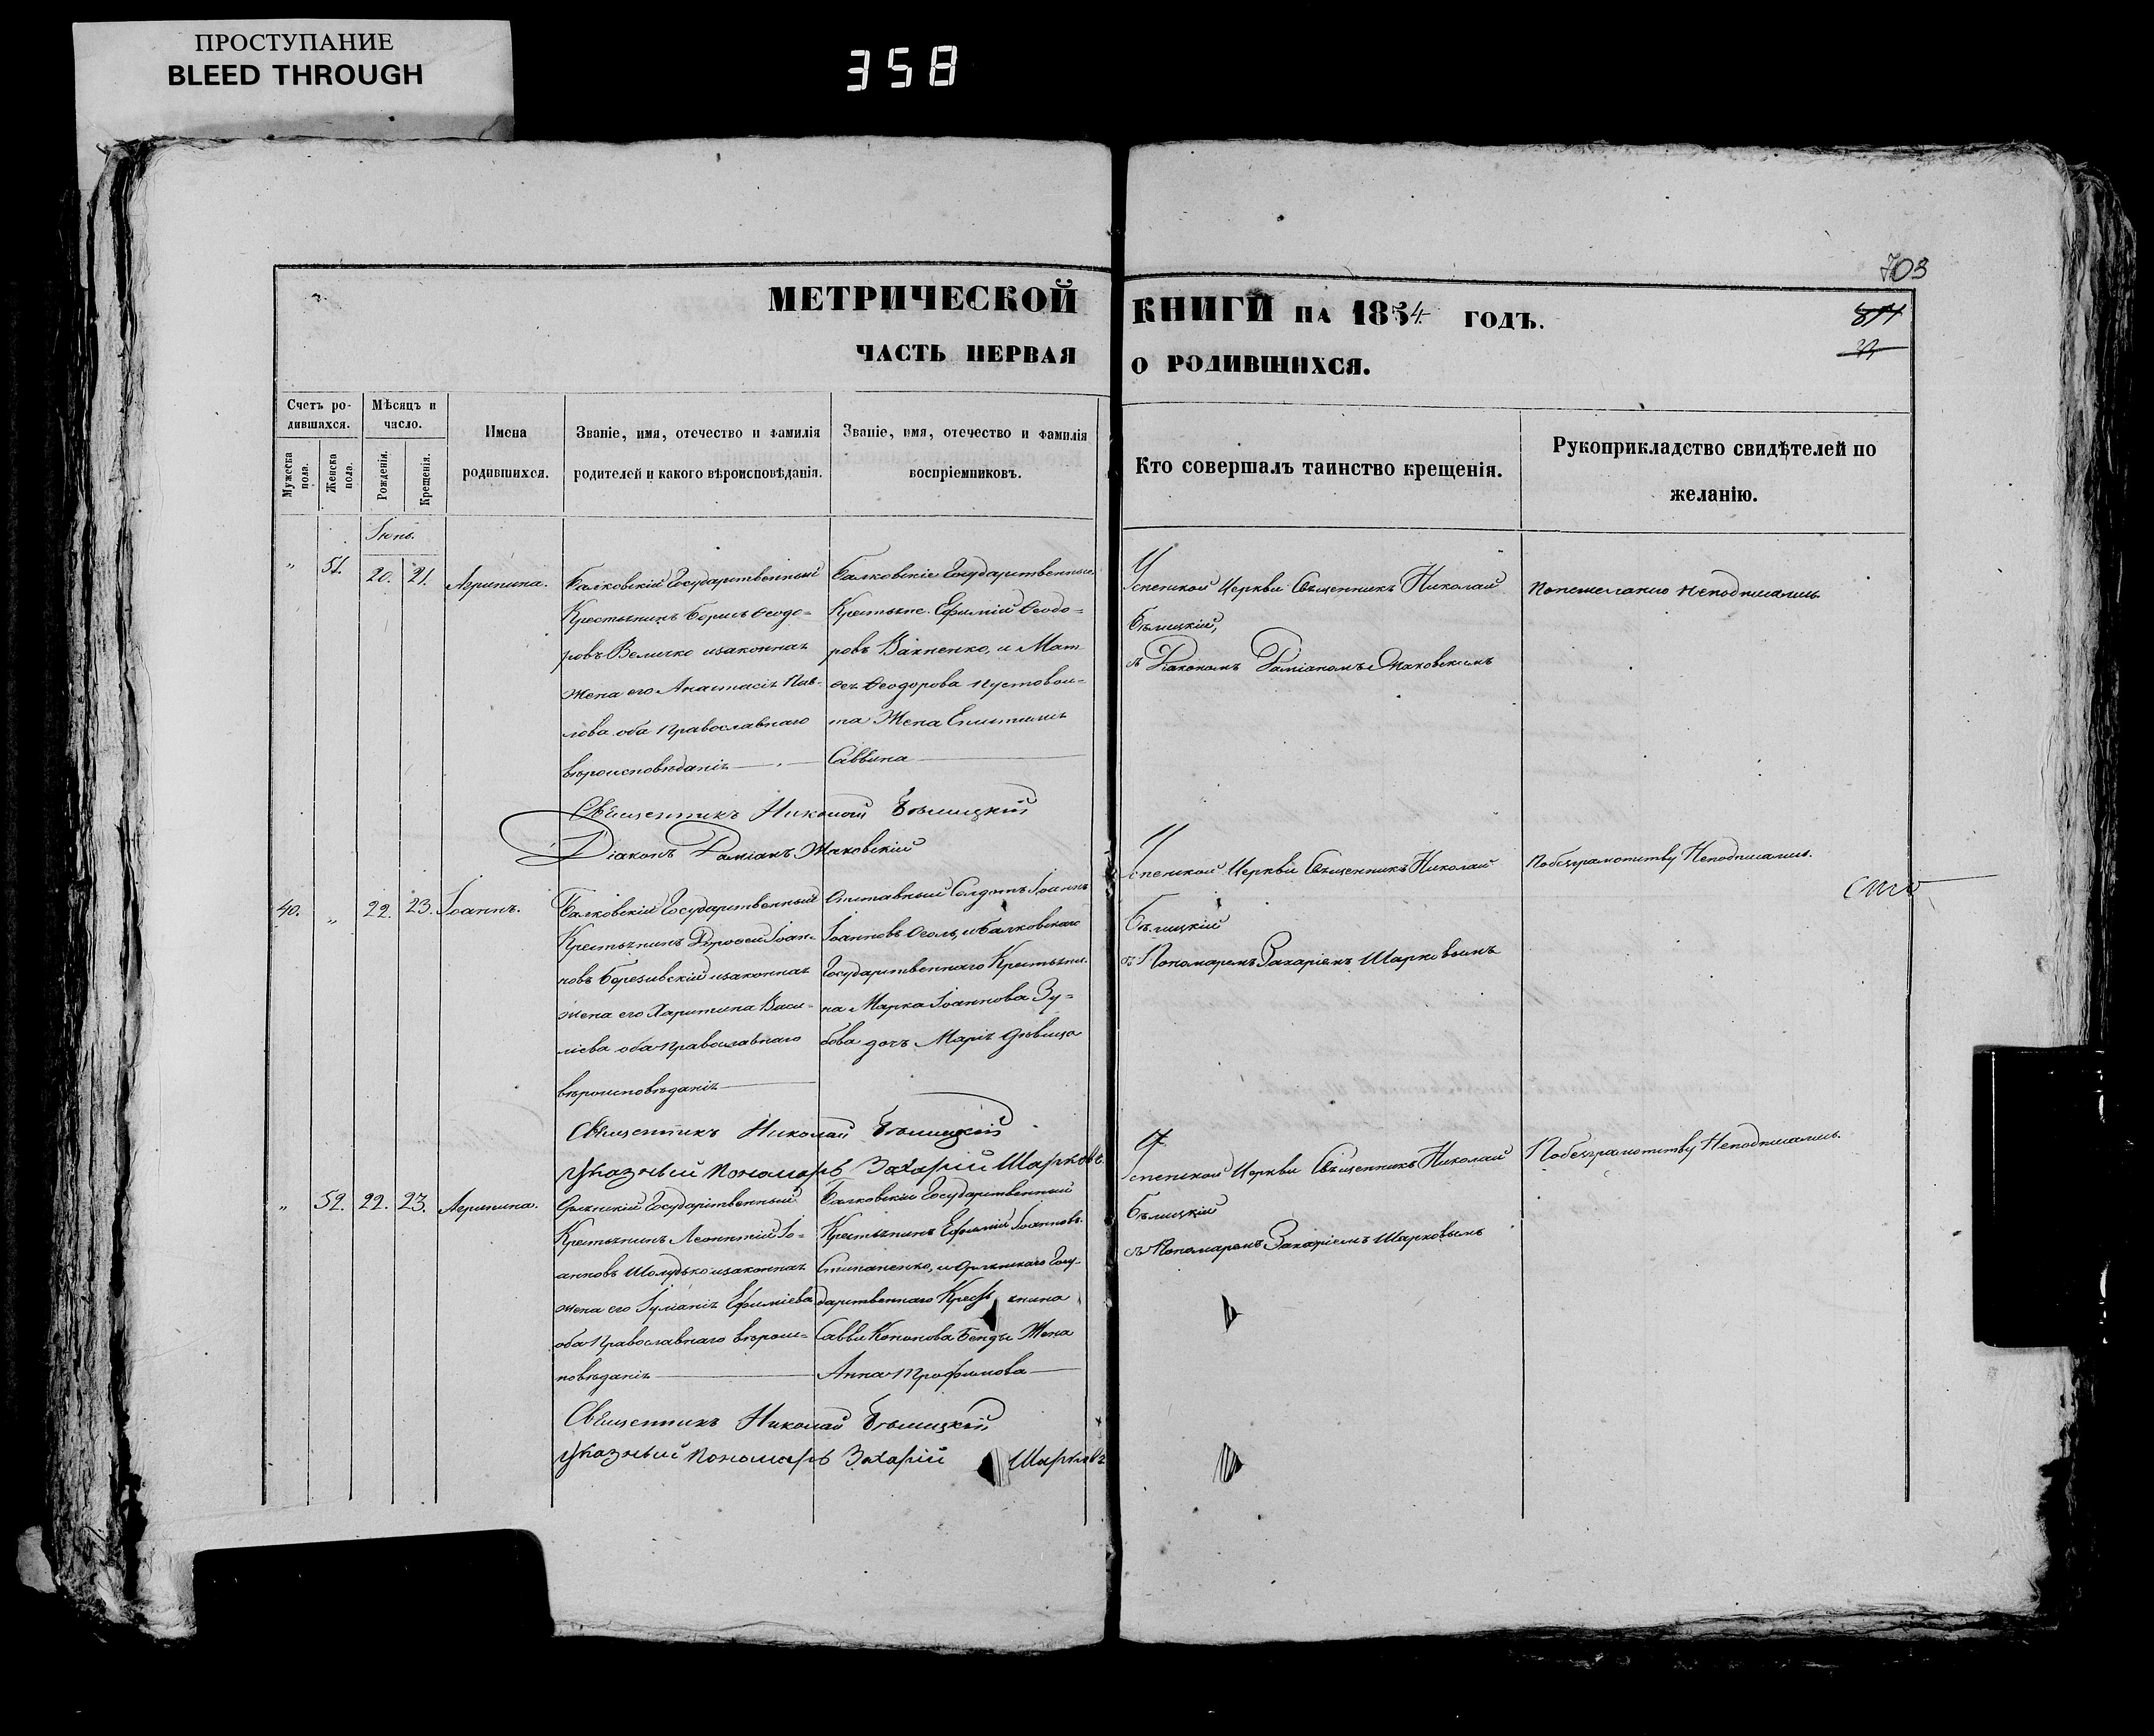 ПРОСТУПАНИЕ
BLEED THROUGH
358
703
МЕТРИЧЕСКОЙ КНИГИ НА 1854 ГОДЪ.
ЧАСТЬ ПЕРВАЯ О РОДИВШИХСЯ.
Счетъ ро-
дившахся.
Мужеска пола.
Женска пола.
Мѣсяцъ и
число.
Рожденія.
Крещенія.
Имена
родившихся.
Званіе, имя, отечество и фамилія
родителей и какого вѣроисповѣданія.
Званіе, имя, отечество и фамилія
воспріемниковъ.
Кто совершалъ таинство крещенія.
Рукоприкладство свидѣтелей по
желанію.
Іюнь.
" 51. 20. 21. Агрипина.
Балковскій Государственный
Крестьянинъ Борисъ Ѳеодо=
ровъ Величко изаконная
жена его Анастасія Пав-
лова оба Православнаго
вѣроисповѣданія
Балковскіе Государственные
Крестьяне Ефимій Ѳеодо=
ровъ Вахненко, и Мат
ѳея Ѳеодорова Пустовои=
та Жена Епистимія
Саввина
Успенской Церкви Священникъ Николай
Бѣлицкій,
съ Діакономъ Даміаномъ Маковскимъ
Понежеланію неподписались.
Священникъ Николай Бѣлицкій
Діаконъ Даміанъ Маковскій
40. " 22. 23. Іоаннъ.
Балковскій Государственный
Крестьянинъ Дороѳей Іоан-
новъ Березивскій изаконная
жена его Харитина Васи-
ліева оба Православнаго
вѣроисповѣданія
Отставный Солдатъ Іоаннъ
Іоанновъ Осоль, и Балковскаго
Государственнаго Крестьяни-
на Марка Іоаннова Зу=
бова дочь Марія дѣвица
Успенской Церкви Священникъ Николай
Бѣлицкій
съ Пономаремъ Захаріемъ Шарковымъ
Побезграмотству Неподписались.
Священникъ Николай Бѣлицкій
Указный Пономарь Захарій Шарковъ
" 52. 22. 23. Агрипина.
Государственный
Крестьянинъ Леонтій Іо=
анновъ Шолудько изаконная
жена его Іуліанія Ефиміева
оба Православнаго вѣроис=
повѣданія
Балковскій Государственный
Крестьянинъ Ефимій Іоанновъ
Степаненко, и Госу-
дарственнаго Крестьянина
Саввы Кононова Бенды Жена
Анна Трофимова
Успенской Церкви Священникъ Николай
Бѣлицкій
съ Пономаремъ Захаріемъ Шарковымъ
Побезграмотству Неподписались.
Священникъ Николай Бѣлицкій
Указный Пономарь Захарій Шарковъ